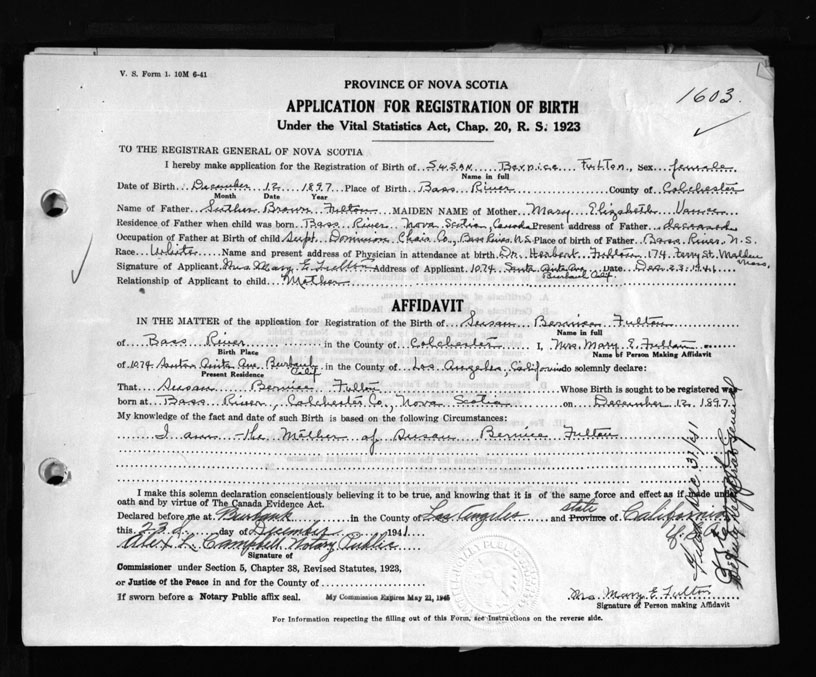 V. S. Form 1. 10M 6-41
1603.
PROVINCE OF NOVA SCOTIA
APPLICATION FOR REGISTRATION OF BIRTH
Under the Vital Statistics Act, Chap. 20, R. S. 1923
TO THE REGISTRAR GENERAL OF NOVA SCOTIA
I hereby make application for the Registration of Birth of Susan Bernice Fulton, Sex female
Name in full
Date of Birth December 12 1897 Place of Birth Bass River County of Colchester
Month Date Year
Name of Father Luther Brown Fulton MAIDEN NAME of Mother Mary Elizabeth Vance
Residence of Father when child was born Bass River Nova Scotia, Canada Present address of Father deceased
Occupation of Father at Birth of child Supt. Dominion Chair Co., Bass River, N.S. Place of birth of Father Bass River, N.S.
Race White Name and present address of Physician in attendance at birth Dr. Herbert Fulton, 174 Ferry St. Malden Mass,
Signature of Applicant Mrs Mary E. Fulton Address of Applicant 1074 Santa Anita Ave Burbank Calif Date Dec 23 1941
Relationship of Applicant to child Mother
AFFIDAVIT
IN THE MATTER of the application for Registration of the Birth of Susan Bernice Fulton
Name in full
of Bass River in the County of Colchester I, Mrs. Mary E. Fulton
Birth Place Name of Person Making Affidavit
of 1074 Santa Anita Ave, Burbank Calif in the County of Los Angeles, California do solemnly declare:
Present Residence
That Susan Bernice Fulton Whose Birth is sought to be registered was
born at Bass River, Colchester Co., Nova Scotia on December 12, 1897
My knowledge of the fact and date of such Birth is based on the following Circumstances:
I am the Mother of Susan Bernice Fulton
I make this solemn declaration conscientiously believing it to be true, and knowing that it is of the same force and effect as if made under
oath and by virtue of The Canada Evidence Act.
Declared before me at Burbank in the County of Los Angeles state and Province of California
this 23d day of December 1941
Alex L. Campbell Notary Public
Signature of
Commissioner under Section 5, Chapter 38, Revised Statutes, 1923,
or Justice of the Peace in and for the County of
If sworn before a Notary Public affix seal. My Commission Expires May 21, 1945
Mrs. Mary E. Fulton
Signature of Person making Affidavit
For Information respecting the filling out of this Form, see Instructions on the reverse side.
Filed Dec 31/41
Deputy Registrar General